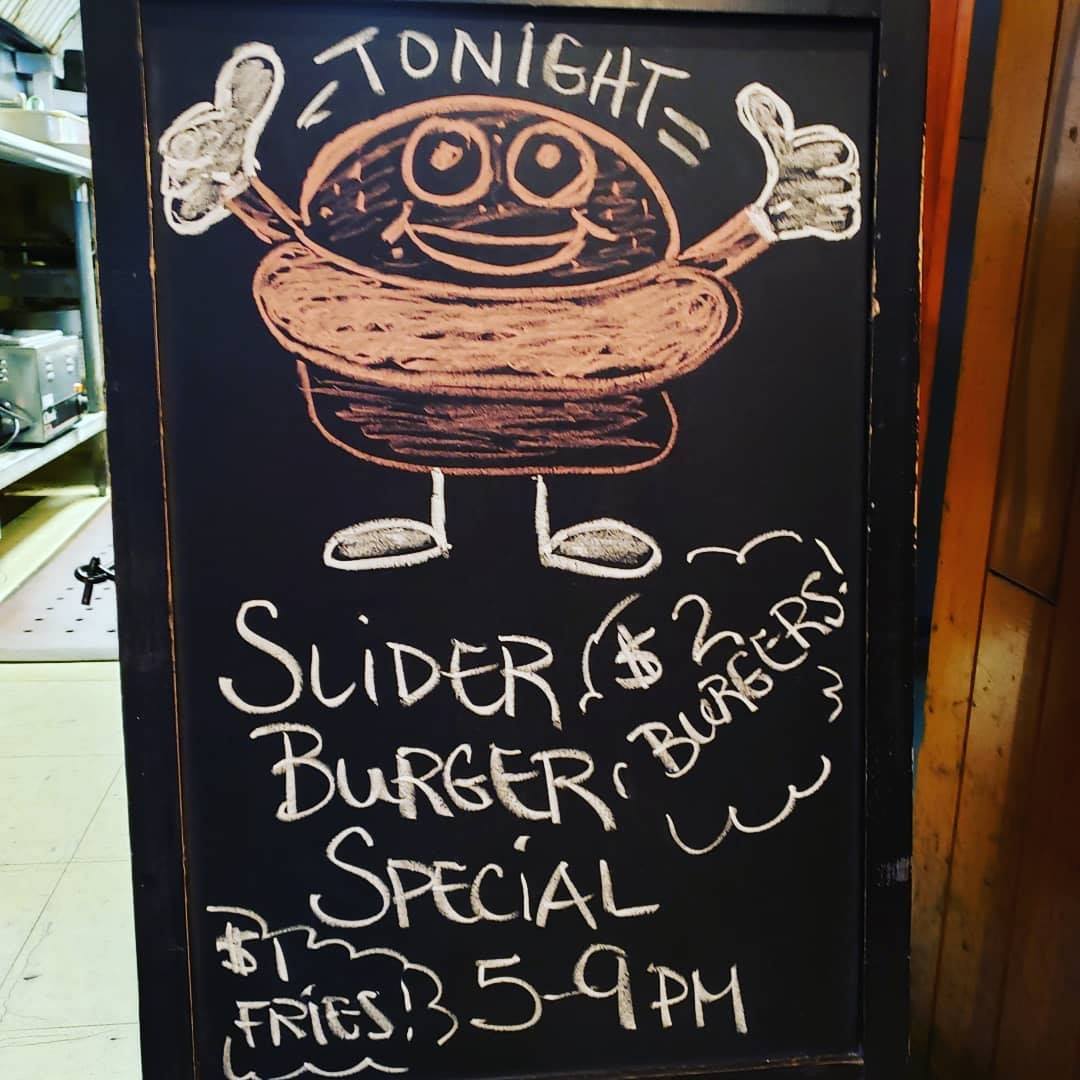 TONIGHT
SLIDER
BURGER
SPECIAL
5-9PM
$2
BURGERS!
$1
FRIES!